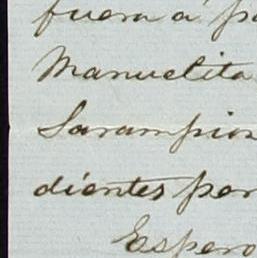 fuera á pa
Manuelita
Sarampion
dientes per
Espero